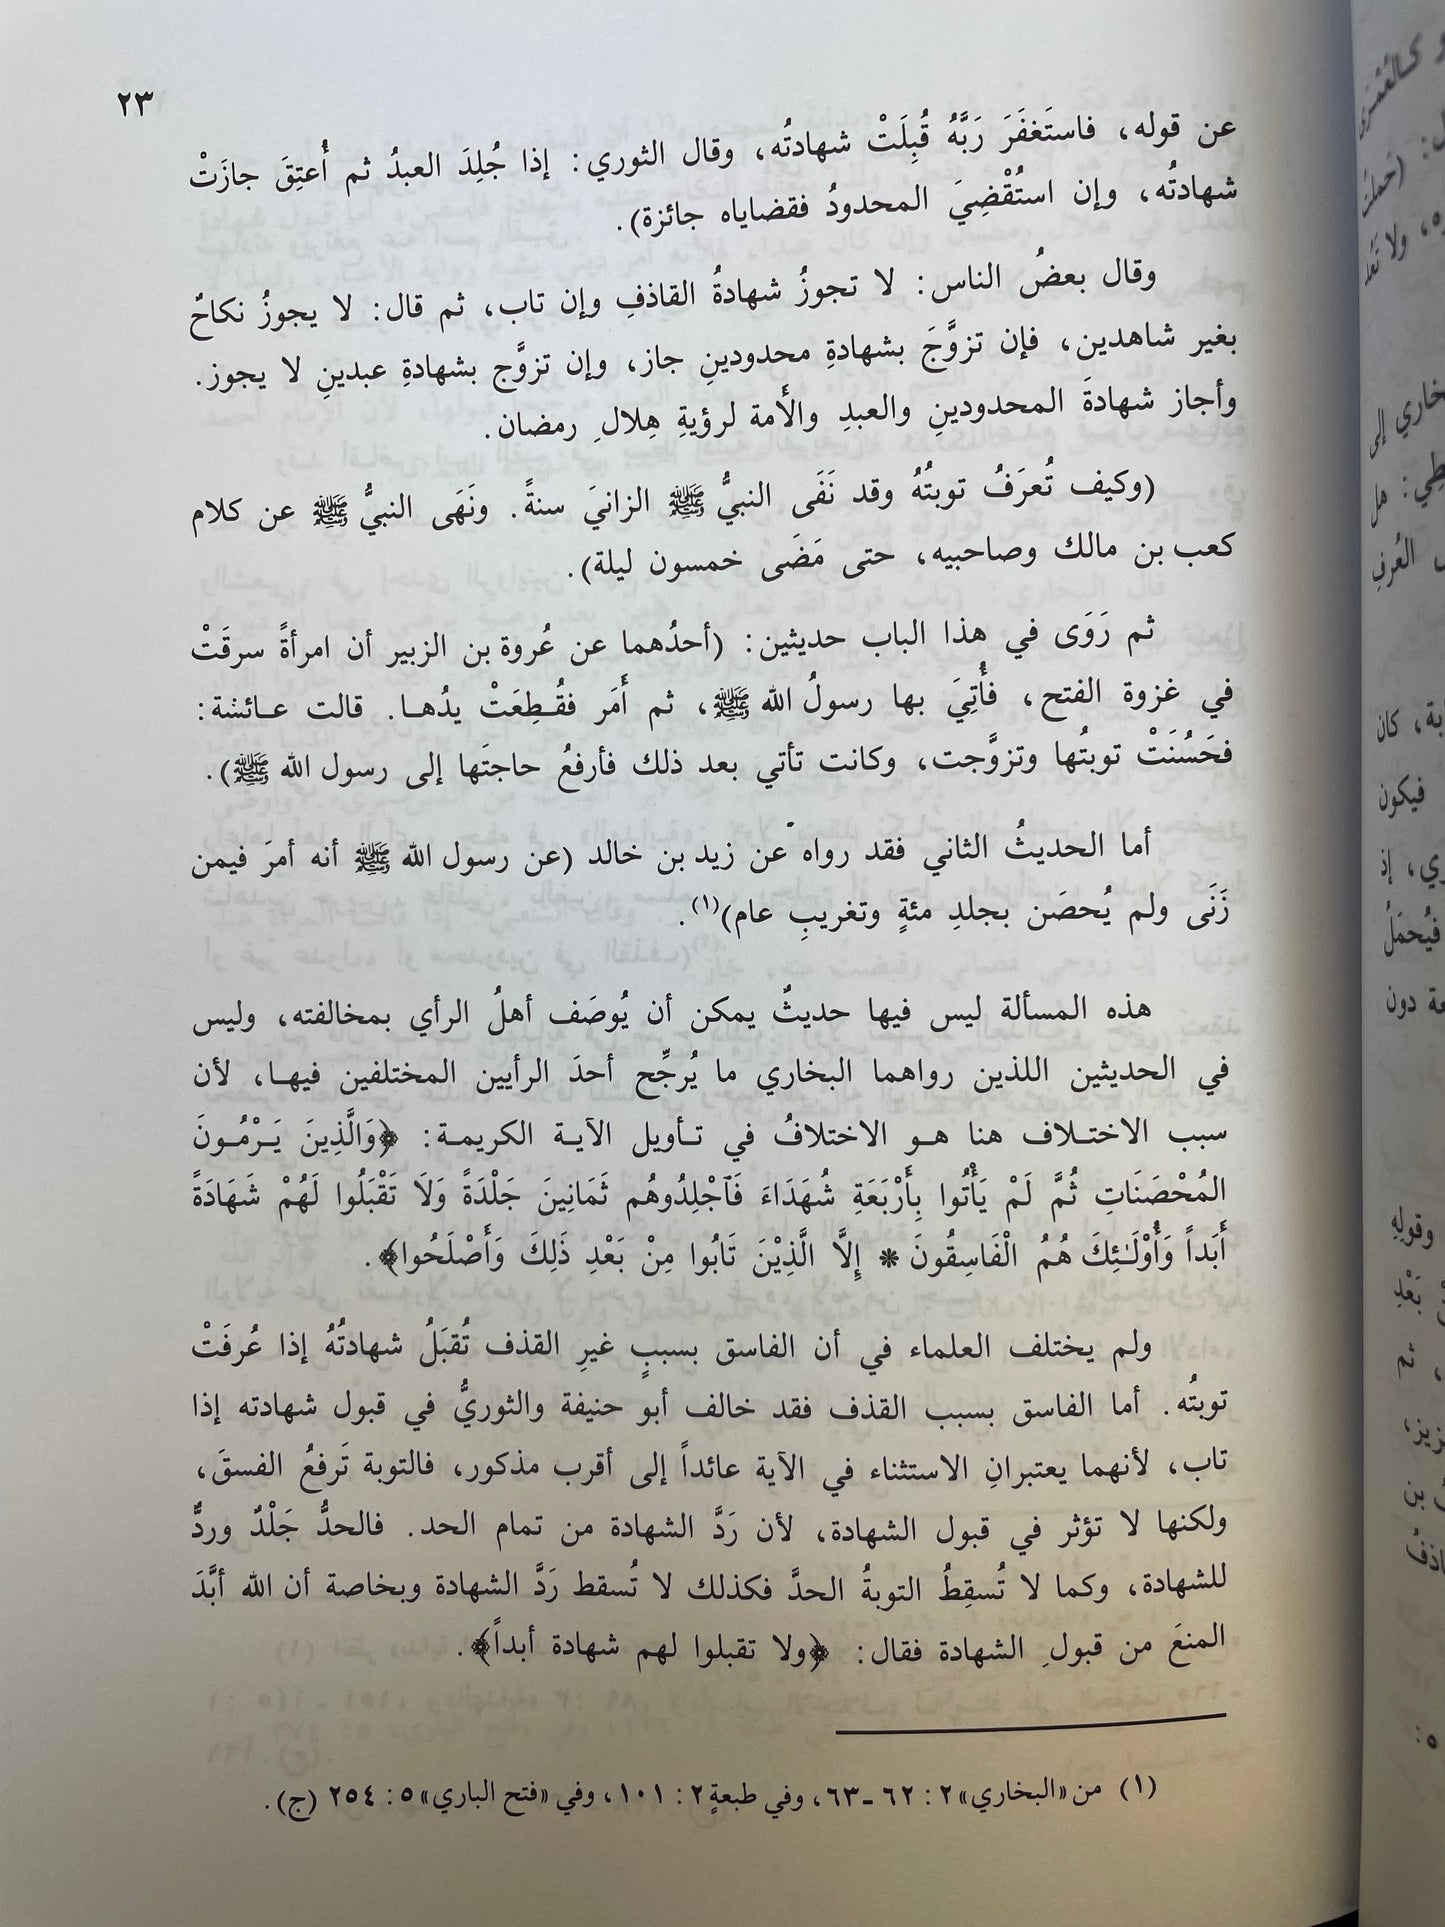 ٢٣
عن قوله، فاستَغفَرَ رَبَّهُ قُبِلَتْ شهادتُه، وقال الثوري: إذا جُلِدَ العبدُ ثم أُعتِقَ جازَتْ
شهادتُه، وإن استُقْضِيَ المحدودُ فقضاياه جائزة).
وقال بعضُ الناس: لا تجوزُ شهادةُ القاذفِ وإن تاب، ثم قال: لا يجوزُ نكاحٌ
بغير شاهدين، فإن تزوَّجَ بشهادةِ محدودينِ جاز، وإن تزوَّج بشهادةِ عبدينِ لا يجوز.
وأجاز شهادةَ المحدودينِ والعبدِ والأَمة لرؤيةِ هِلالِ رمضان.
(وكيف تُعرَفُ توبتُهُ وقد نَفَى النبيُّ ﷺ الزانيَ سنةً. ونَهَى النبيُّ ﷺ عن كلام
كعب بن مالك وصاحبيه، حتى مَضَى خمسون ليلة).
ثم رَوَى في هذا الباب حديثين: (أحدُهما عن عُروة بن الزبير أن امرأةً سرقَتْ
في غزوة الفتح، فأُتِيَ بها رسولُ الله ﷺ، ثم أَمَر فقُطِعَتْ يدُها. قالت عائشة:
فحَسُنَتْ توبتُها وتزوَّجت، وكانت تأتي بعد ذلك فأرفعُ حاجتَها إلى رسول الله ﷺ).
أما الحديثُ الثاني فقد رواه عن زيد بن خالد (عن رسول الله ﷺ أنه أمرَ فيمن
زَنَى ولم يُحصَن بجلدِ مئةٍ وتغريبِ عام)(١).
هذه المسألة ليس فيها حديثٌ يمكن أن يُوصَف أهلُ الرأي بمخالفته، وليس
في الحديثين اللذين رواهما البخاري ما يُرجِّح أحدَ الرأيين المختلفين فيها، لأن
سبب الاختلاف هنا هو الاختلافُ في تأويل الآية الكريمة: ﴿وَالَّذِينَ يَرْمُونَ
المُحْصَنَاتِ ثُمَّ لَمْ يَأْتُوا بِأَرْبَعَةِ شُهَدَاءَ فَاَجْلِدُوهُم ثَمَانِينَ جَلْدَةً وَلَا تَقْبَلُوا لَهُمْ شَهَادَةً
أَبَداً وَأُوْلَـٰئِكَ هُمُ الْفَاسِقُونَ * إِلَّا الَّذِيْنَ تَابُوا مِنْ بَعْدِ ذَلِكَ وَأَصْلَحُوا﴾.
ولم يختلف العلماء في أن الفاسق بسببٍ غيرِ القذف تُقبَلُ شهادتُهُ إذا عُرفَتْ
توبتُه. أما الفاسق بسبب القذف فقد خالف أبو حنيفة والثوريُّ في قبول شهادته إذا
تاب، لأنهما يعتبرانِ الاستثناء في الآية عائداً إلى أقرب مذكور، فالتوبة تَرفعُ الفسقَ،
ولكنها لا تؤثر في قبول الشهادة، لأن رَدَّ الشهادة من تمام الحد. فالحدُّ جَلْدٌ وردٌّ
للشهادة، وكما لا تُسقِطُ التوبةُ الحدَّ فكذلك لا تُسقط رَدَّ الشهادة وبخاصة أن الله أبَّدَ
المنعَ من قبولِ الشهادة فقال: ﴿ولا تقبلوا لهم شهادة أبداً﴾.
(١) من «البخاري» ٢: ٦٢ ـ ٦٣، وفي طبعةٍ ٢: ١٠١، وفي «فتح الباري» ٥: ٢٥٤ (ج).